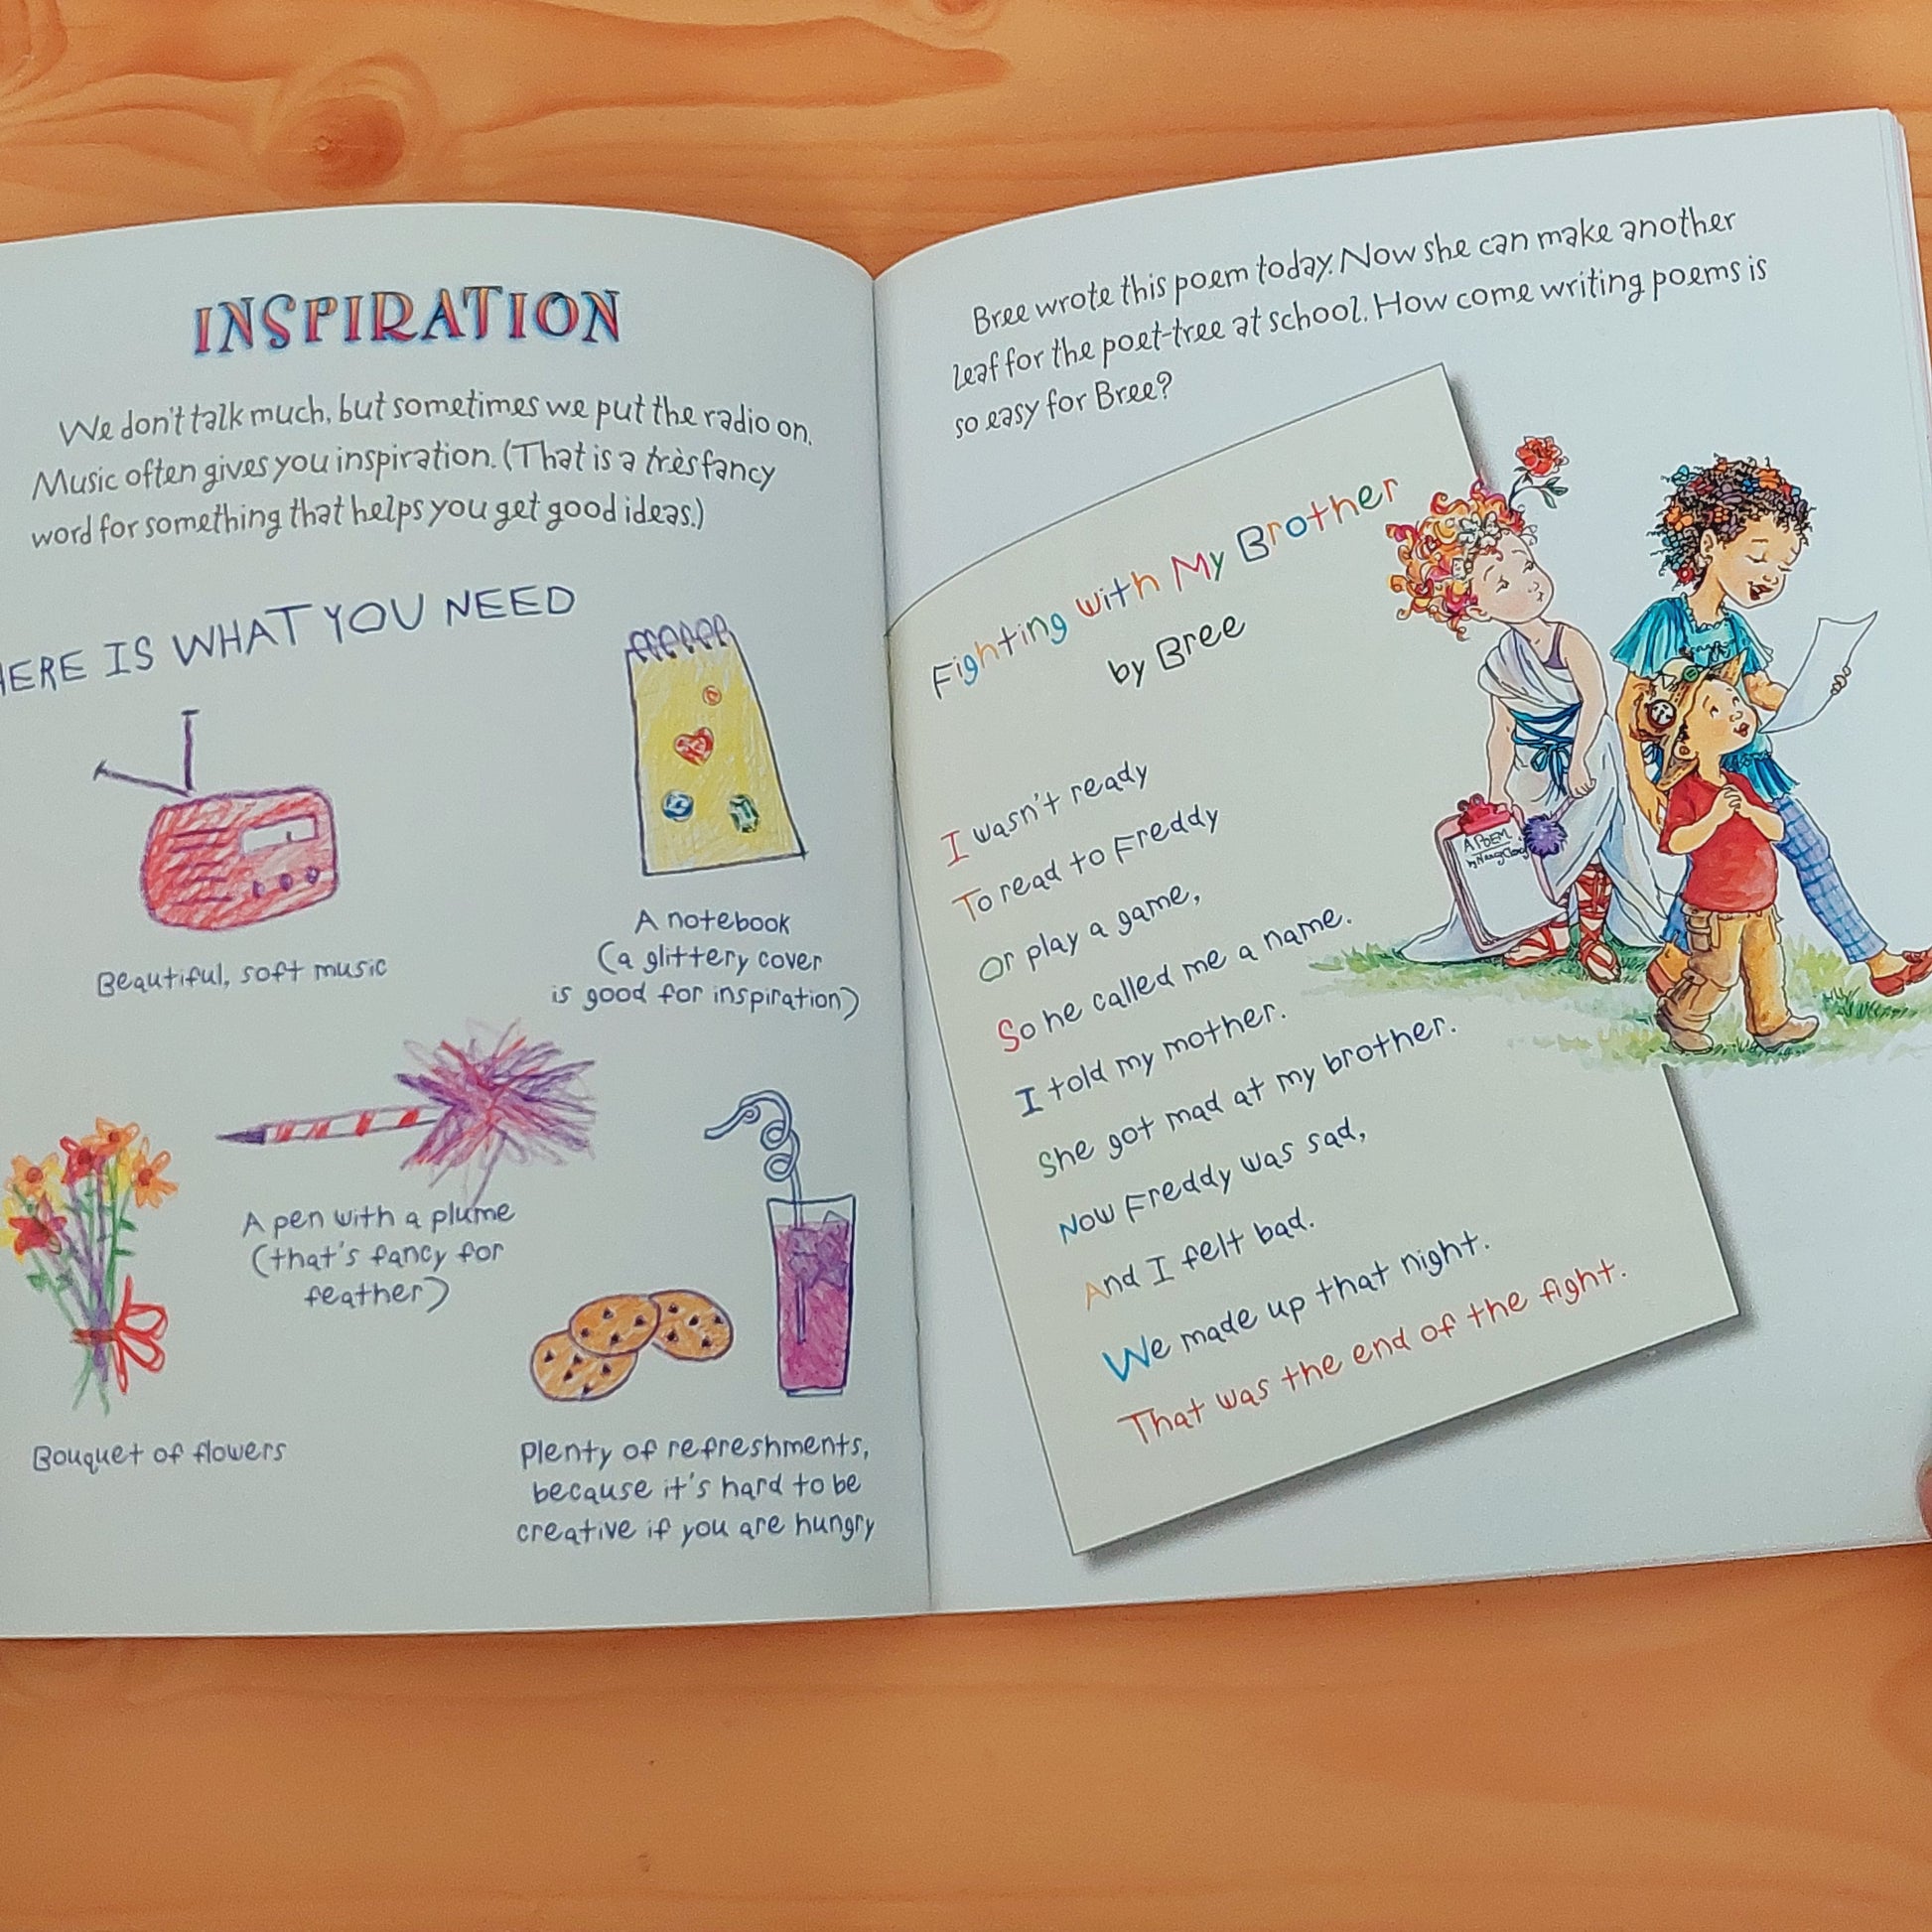 INSPIRATION
We don't talk much, but sometimes we put the radio on.
Music often gives you inspiration. (That is a très fancy
word for something that helps you get good ideas.)
HERE IS WHAT YOU NEED
Beautiful, soft music
A notebook
(a glittery cover
is good for inspiration)
A pen with a plume
(that's fancy for
feather)
Bouquet of flowers
Plenty of refreshments,
because it's hard to be
creative if you are hungry
Bree wrote this poem today. Now she can make another
leaf for the poet-tree at school. How come writing poems is
so easy for Bree?
Fighting with My Brother
by Bree
I wasn't ready
To read to Freddy
Or play a game,
So he called me a name.
I told my mother.
She got mad at my brother.
Now Freddy was sad,
And I felt bad.
We made up that night.
That was the end of the fight.
A POEM
by Nancy Clancy